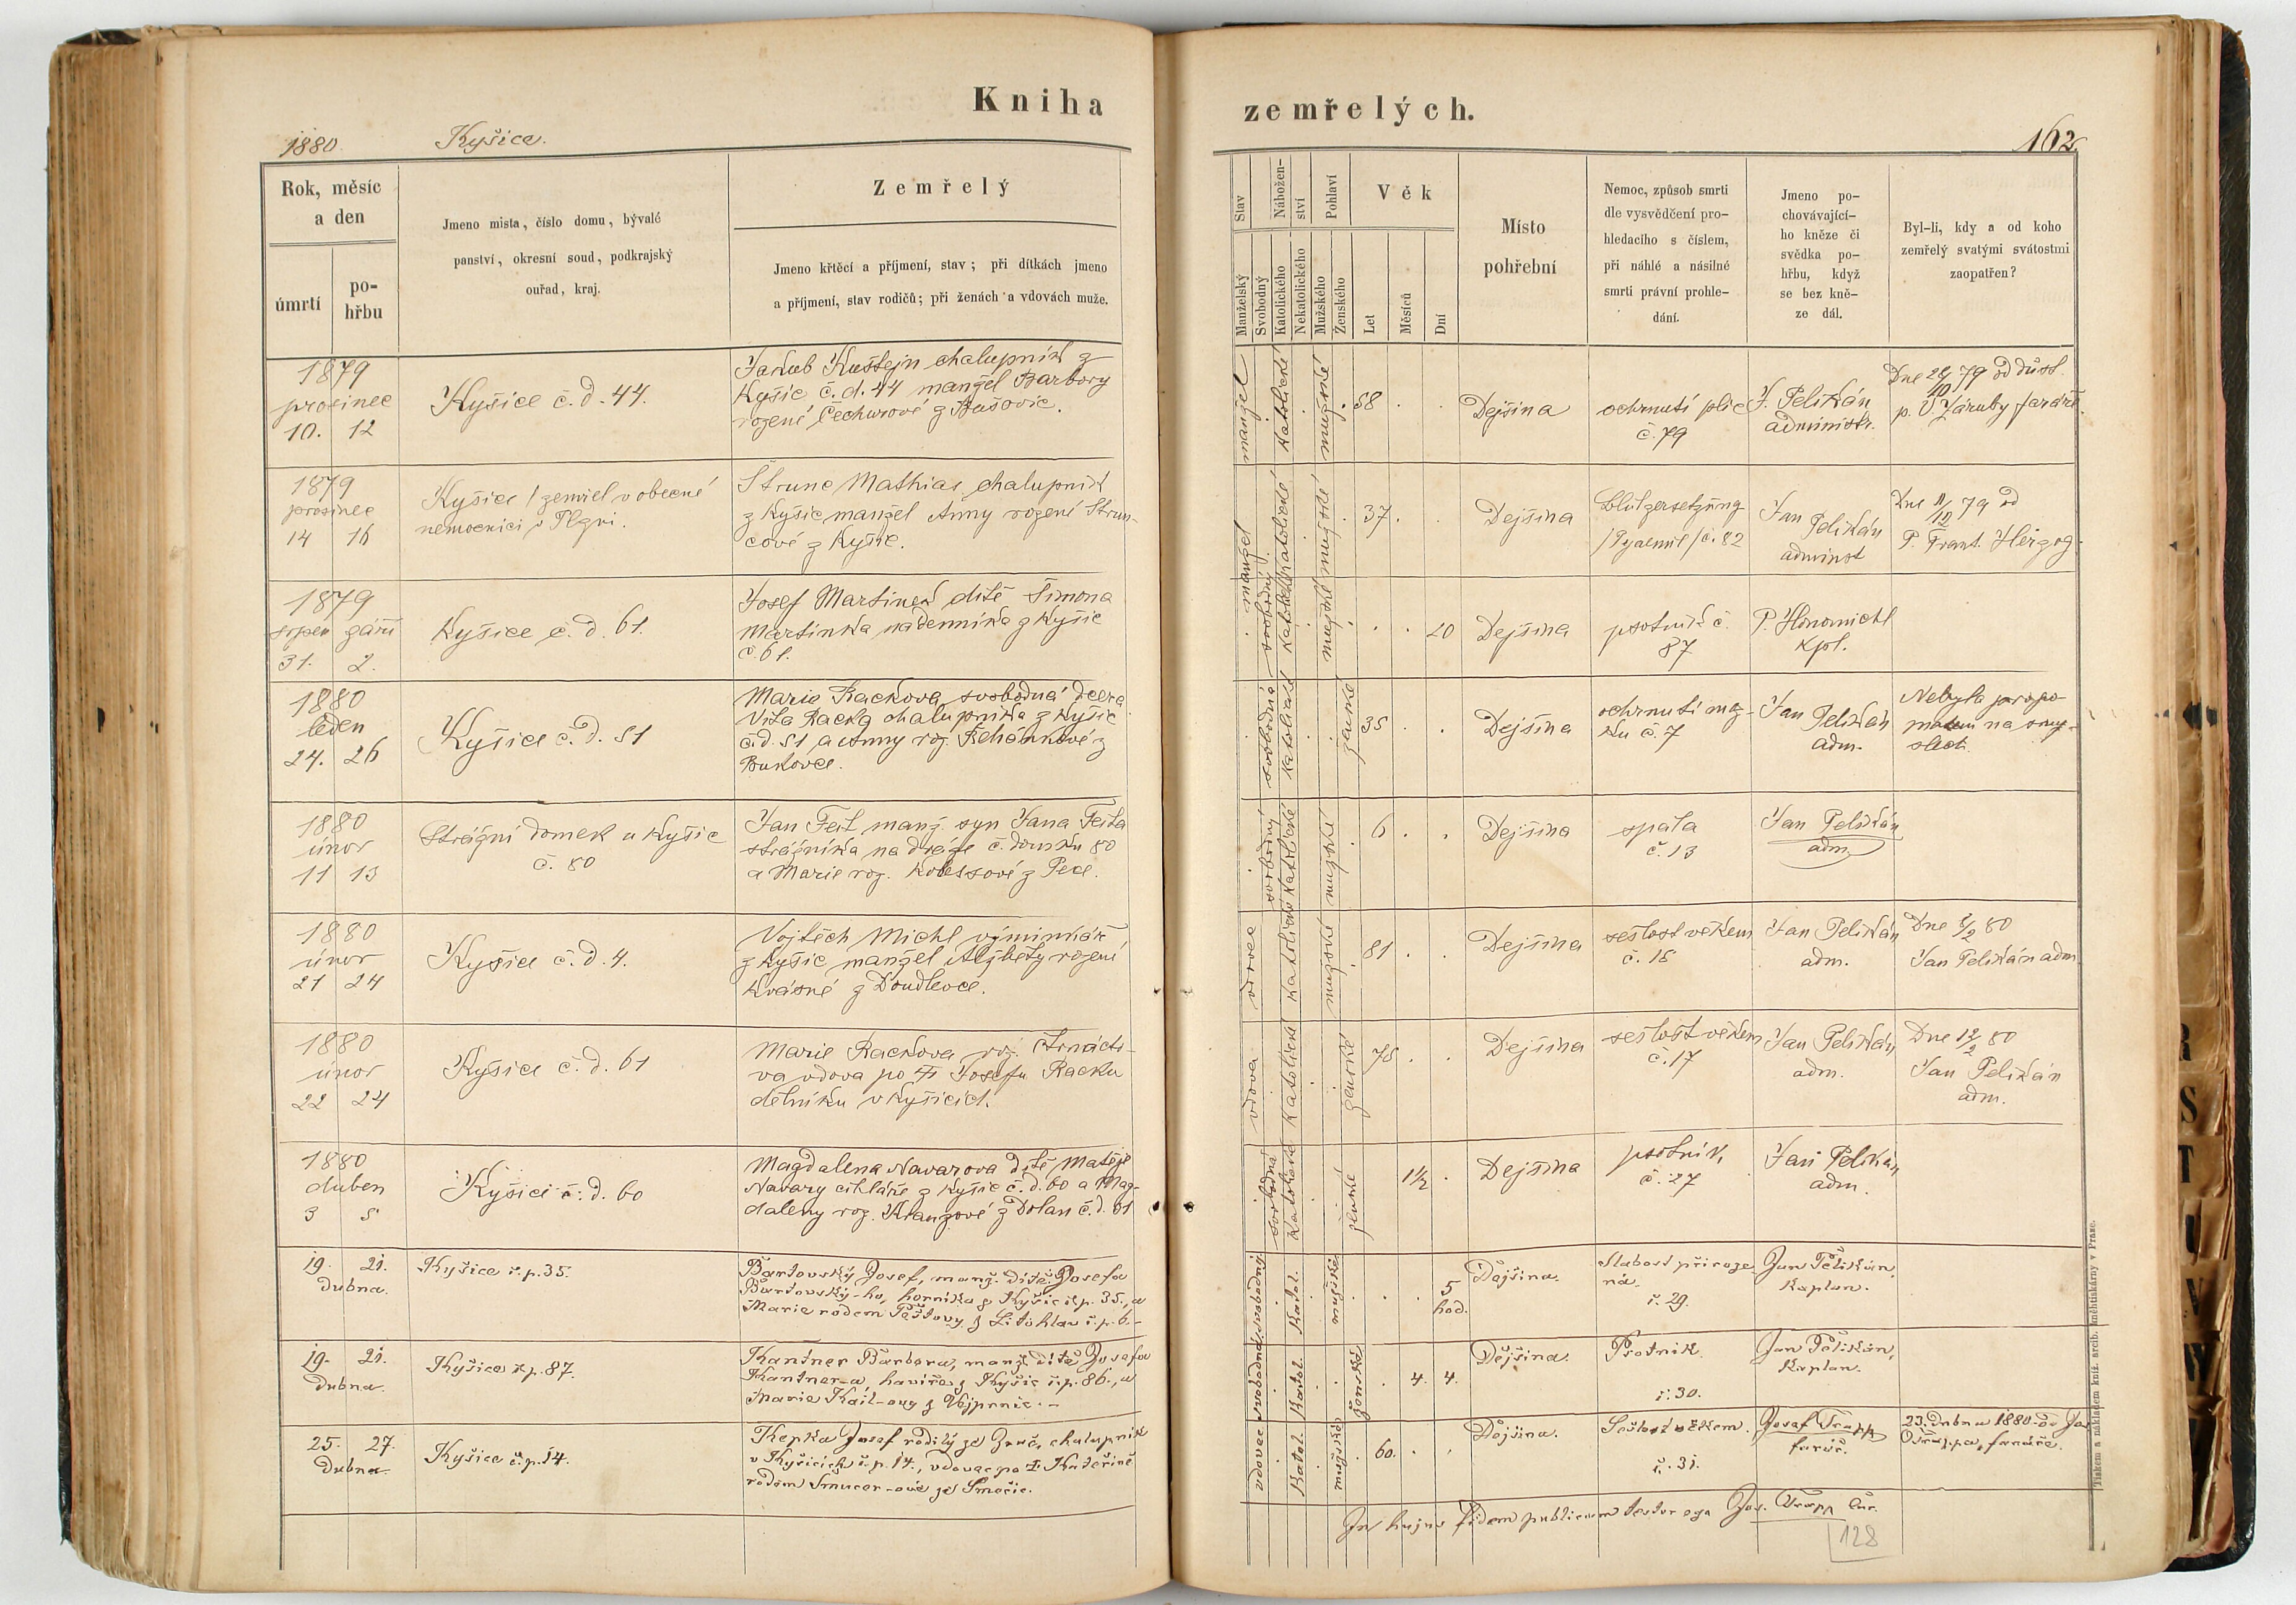 Kniha
zemřelých.
1880.
Kyšice.
162.
Rok, měsíc
a den
úmrtí
po-
hřbu
Jmeno mista, číslo domu, bývalé
panství, okresní soud, podkrajský
ouřad, kraj.
Zemřelý
Jmeno křtěcí a příjmení, stav; při dítkách jmeno
a příjmení, stav rodičů; při ženách a vdovách muže.
Stav
Manželský
Svobodný
Nábožen-
ství
Katolického
Nekatolického
Pohlaví
Mužského
Ženského
Věk
Let
Měsíců
Dní
Místo
pohřební
Nemoc, způsob smrti
dle vysvědčení pro-
hledacího s číslem,
při náhlé a násilné
smrti právní prohle-
dání.
Jmeno po-
chovávající-
ho kněze či
svědka po-
hřbu, když
se bez kně-
ze dál.
Byl-li, kdy a od koho
zemřelý svatými svátostmi
zaopatřen?
1879
prosinec
10. 12
Kyšice č. d. 44.
Jakub Kuštejn chalupník z
Kyšic č. d. 44 manžel Barbory
rozené Čechurové z
manžel
katolické
mužské
58
Dejšina
ochrnutí plic
č. 79
J. Pelikán
administr.
Dne 28/10 79 od důst.
p. V. Záruby faráře.
1879
prosinec
14 16
Kyšice / zemřel v obecné
nemocnici v Plzni.
Strunc Mathias chalupník
z Kyšic manžel Anny rozené Strun-
cové z Kyšic.
manžel
katolické
mužské
37.
Dejšina
Blutzersetzung
/Pyaemil/ č. 82
Jan
Pelikán
administ
Dne 11/12 79 od
P. Frant. Herzog.
1879
srpen září
31. 2.
Kyšice č. d. 61.
Josef Martinek dítě Šimona
Martinka nadenníka z Kyšic
č. 61.
svobodný
katolické
mužské
20
Dejšina
psotník č.
87
P.
Kpl.
1880
leden
24. 26
Kyšice č. d. 51
Marie Rackova svobodná dcera
Víta Racka chalupníka z Kyšic
č. d. 51 a Anny roz. Řehánkové z
Bukovce.
svobodná
katolické
ženské
35
Dejšina
ochrnutí moz-
ku č. 7
Jan
Pelikán
adm.
Nebyla pro po-
matení na smy-
slech.
1880
únor
11 13
Strážní domek u Kyšic
č. 80
Jan Feit manž. syn Jana Feita
strážníka na dráze č. domku 80
a Marie roz. Kobessové z Pece.
svobodný
katolické
mužské
6
Dejšina
spala
č. 13
Jan Pelikán
adm.
1880
únor
21 24
Kyšice č. d. 4.
Vojtěch Michl výminkář
z Kyšic manžel Alžběty rozené
Krásné z Doudlevce.
vdovec
katolické
mužské
81
Dejšina
sešlost věkem
č. 16
Jan Pelikán
adm.
Dne 8/2 80
Jan Pelikán adm.
1880
únor
22 24
Kyšice č. d. 61
Marie Rackova roz. Čtrnácto-
va vdova po † Josefu Racku
dělníku v Kyšicích.
vdova
katolické
ženské
75
Dejšina
sešlost věkem
č. 17
Jan Pelikán
adm.
Dne 12/2 80
Jan Pelikán
adm.
1880
duben
3 5
Kyšice č. d. 60
Magdalena Navarova dítě Matěje
Navary cihláře z Kyšic č. d. 60 a Mag-
daleny roz. Kranzové z Dolan č. d. 61
svobodná
katolické
ženské
1 1/2
Dejšina
psotník
č. 27
Jan Pelikán
adm.
19. 21.
Dubna.
Kyšice č. p. 35.
Bartovský Josef, manž. dítě Josefa
Bartovský-ho, horníka z Kyšic č. p. 35., a
Marie rodem Peštovy z Litohlav č. p. 6.-
svobodný
Katol.
mužské
5
hod.
Dejšina.
Slabost přiroze-
ná.
č. 29.
Jan Pelikán,
Kaplan.
19. 21.
Dubna.
Kyšice č. p. 87.
Kantner Barbora, manž. dítě Josefa
Kantner-a, havíře z Kyšic č. p. 86., a
Marie z Vejprnic.-
svobodná
Katol.
ženské
4. 4.
Dejšina.
Psotník.
č. 30.
Jan Pelikán,
Kaplan.
25. 27.
Dubna.
Kyšice č. p. 14.
Kepka Josef rodilý ze Žruč, chalupník
v Kyšicích č. p. 14., vdovec po † Kateřině
rodem Smucer-ové ze Smečic.
vdovec
Katol.
mužské
60.
Dejšina.
Sešlost věkem.
č. 31.
Josef Trapp
farář.
23. Dubna 1880 od Jos.
Trappa, faráře.
In hujus fidem publicam testor ego Jos. Trapp Cur.
128
Tiskem a nákladem kníž. arcib. knihtiskárny v Praze.